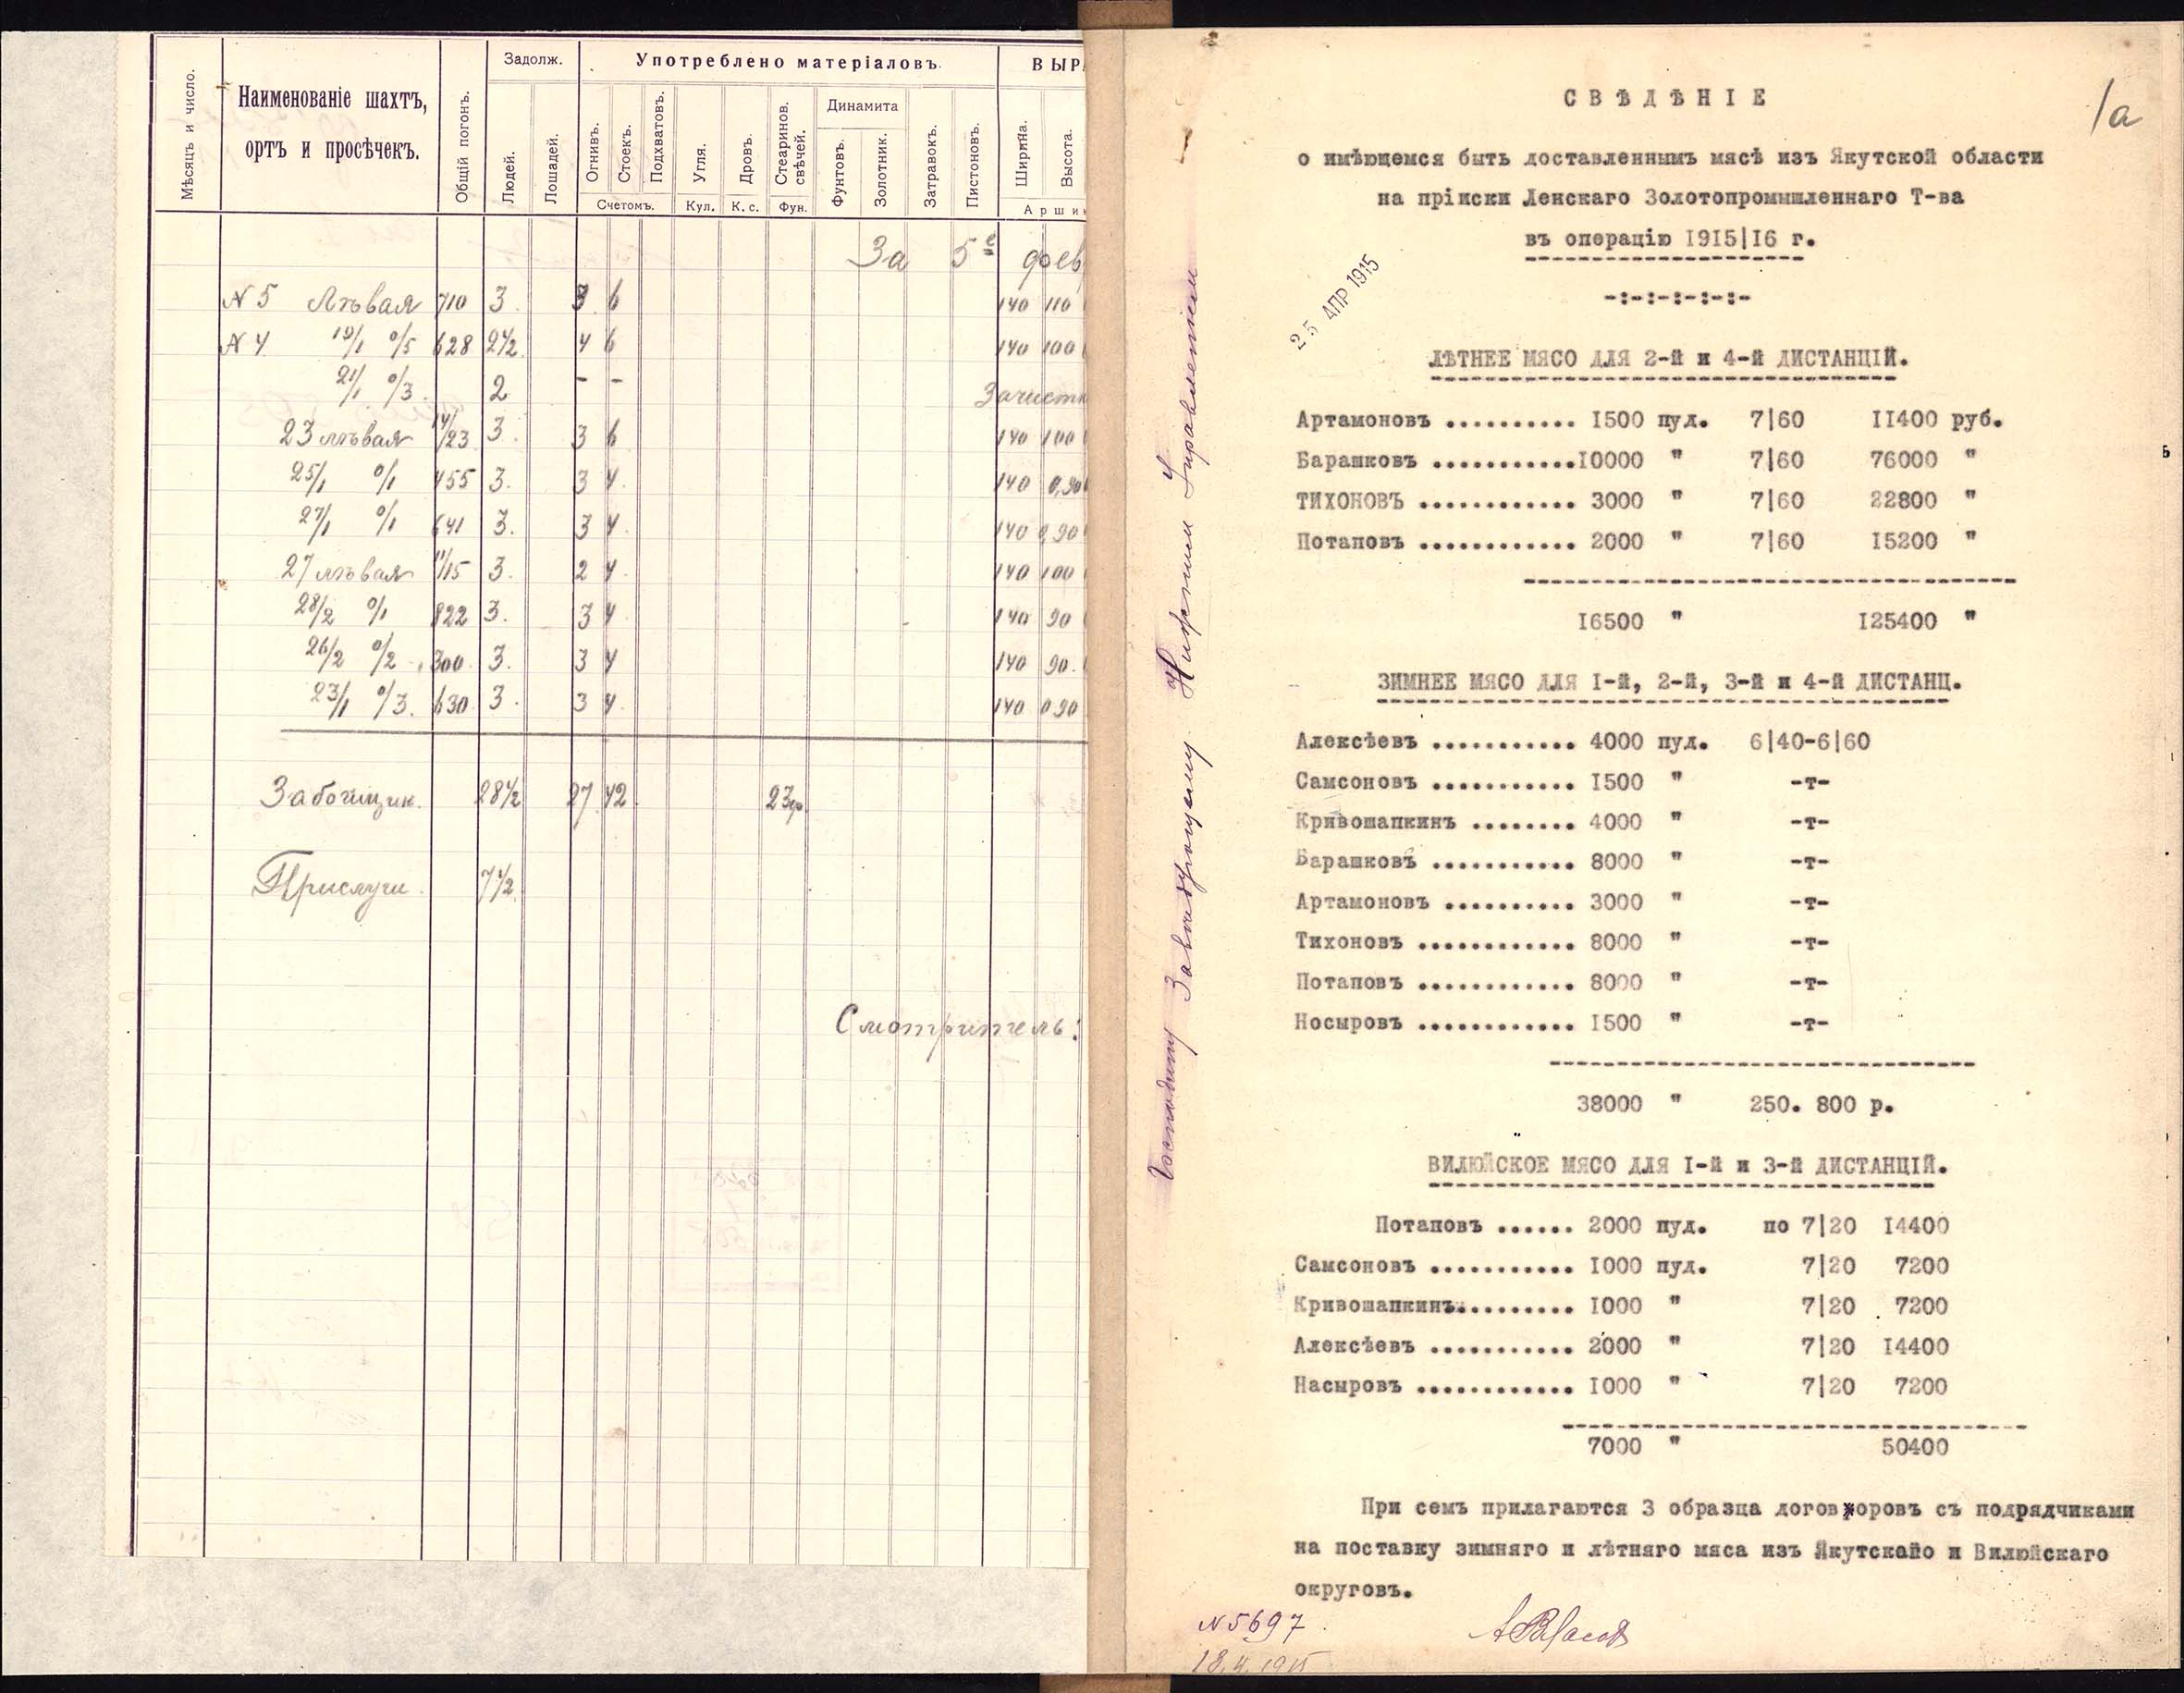 Мѣсяцъ и число.
Наименованіе шахтъ,
ортъ и просѣчекъ.
Общій погонъ.
Задолж.
Людей.
Лошадей.
Употреблено матеріаловъ.
Огнивъ.
Стоекъ.
Подхватовъ.
Счетомъ.
Угля.
Кул.
Дровъ.
К. с.
Стеаринов.
свѣчей.
Фун.
Динамита
Фунтовъ.
Золотник.
Затравокъ.
Пистоновъ.
ВЫРА
Ширина.
Высота.
Арши
За 5е фев
N 5 Лѣвая 710 3 3 6 140 110
N 4 19/1 0/5 628 2 1/2 4 6 140 100
21/1 0/3 2 - - Зачистк
23 лѣвая 14/23 3. 3 6 140 100
25/1 0/1 455 3. 3 4. 140 0,90
27/1 0/1 641 3. 3 4. 140 0,90
27 лѣвая 11/15 3. 2 4. 140 100
28/2 0/1 822 3. 3 4 140 90
26/2 0/2 300. 3. 3 4 140 90.
23/1 0/3. 630 3. 3 4. 140 0 90
Забойщик. 28 1/2 27 42 23ф.
Прислуги. 7 1/2
Смотритель:
1а
СВѢДѢНІЕ
о имѣющемся быть доставленнымъ мясѣ изъ Якутской области
на пріиски Ленскаго Золотопромышленнаго Т-ва
въ операцію 1915|16 г.
-:-:-:-:-:-
25 АПР 1915
ЛѢТНЕЕ МЯСО ДЛЯ 2-й и 4-й ДИСТАНЦІЙ.
Артамоновъ .......... 1500 пуд. 7|60 11400 руб.
Барашковъ ...........10000 " 7|60 76000 "
ТИХОНОВЪ ............ 3000 " 7|60 22800 "
Потаповъ ............ 2000 " 7|60 15200 "
16500 " 125400 "
ЗИМНЕЕ МЯСО ДЛЯ 1-й, 2-й, 3-й и 4-й ДИСТАНЦ.
Алексѣевъ ........... 4000 пуд. 6|40-6|60
Самсоновъ ........... 1500 " -т-
Кривошапкинъ ........ 4000 " -т-
Барашковъ ........... 8000 " -т-
Артамоновъ .......... 3000 " -т-
Тихоновъ ............ 8000 " -т-
Потаповъ ............ 8000 " -т-
Носыровъ ............ 1500 " -т-
38000 " 250. 800 р.
ВИЛЮЙСКОЕ МЯСО ДЛЯ 1-й и 3-й ДИСТАНЦІЙ.
Потаповъ ...... 2000 пуд. по 7|20 14400
Самсоновъ ........... 1000 пуд. 7|20 7200
Кривошапкинъ......... 1000 " 7|20 7200
Алексѣевъ ........... 2000 " 7|20 14400
Насыровъ ............ 1000 " 7|20 7200
7000 " 50400
При семъ прилагаются 3 образца договоровъ съ подрядчиками
на поставку зимняго и лѣтняго мяса изъ Якутскаго и Вилюйскаго
округовъ.
N 5697
18.4.1915
АВласов
Господину Завѣдующему Нижним Управлением